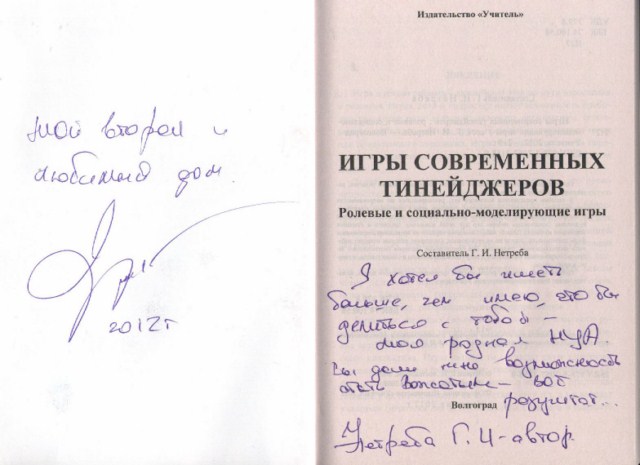 мой второй и
любимый дом.
2012г
Издательство «Учитель»
ИГРЫ СОВРЕМЕННЫХ
ТИНЕЙДЖЕРОВ
Ролевые и социально-моделирующие игры
Составитель Г. И. Нетреба
Я хотел бы иметь
больше, чем имею, что бы
делиться с тобой –
моя родная
Вы дали мне возможность
стать вожатым – вот
результат...
Волгоград
Нетреба Г. И – автор.